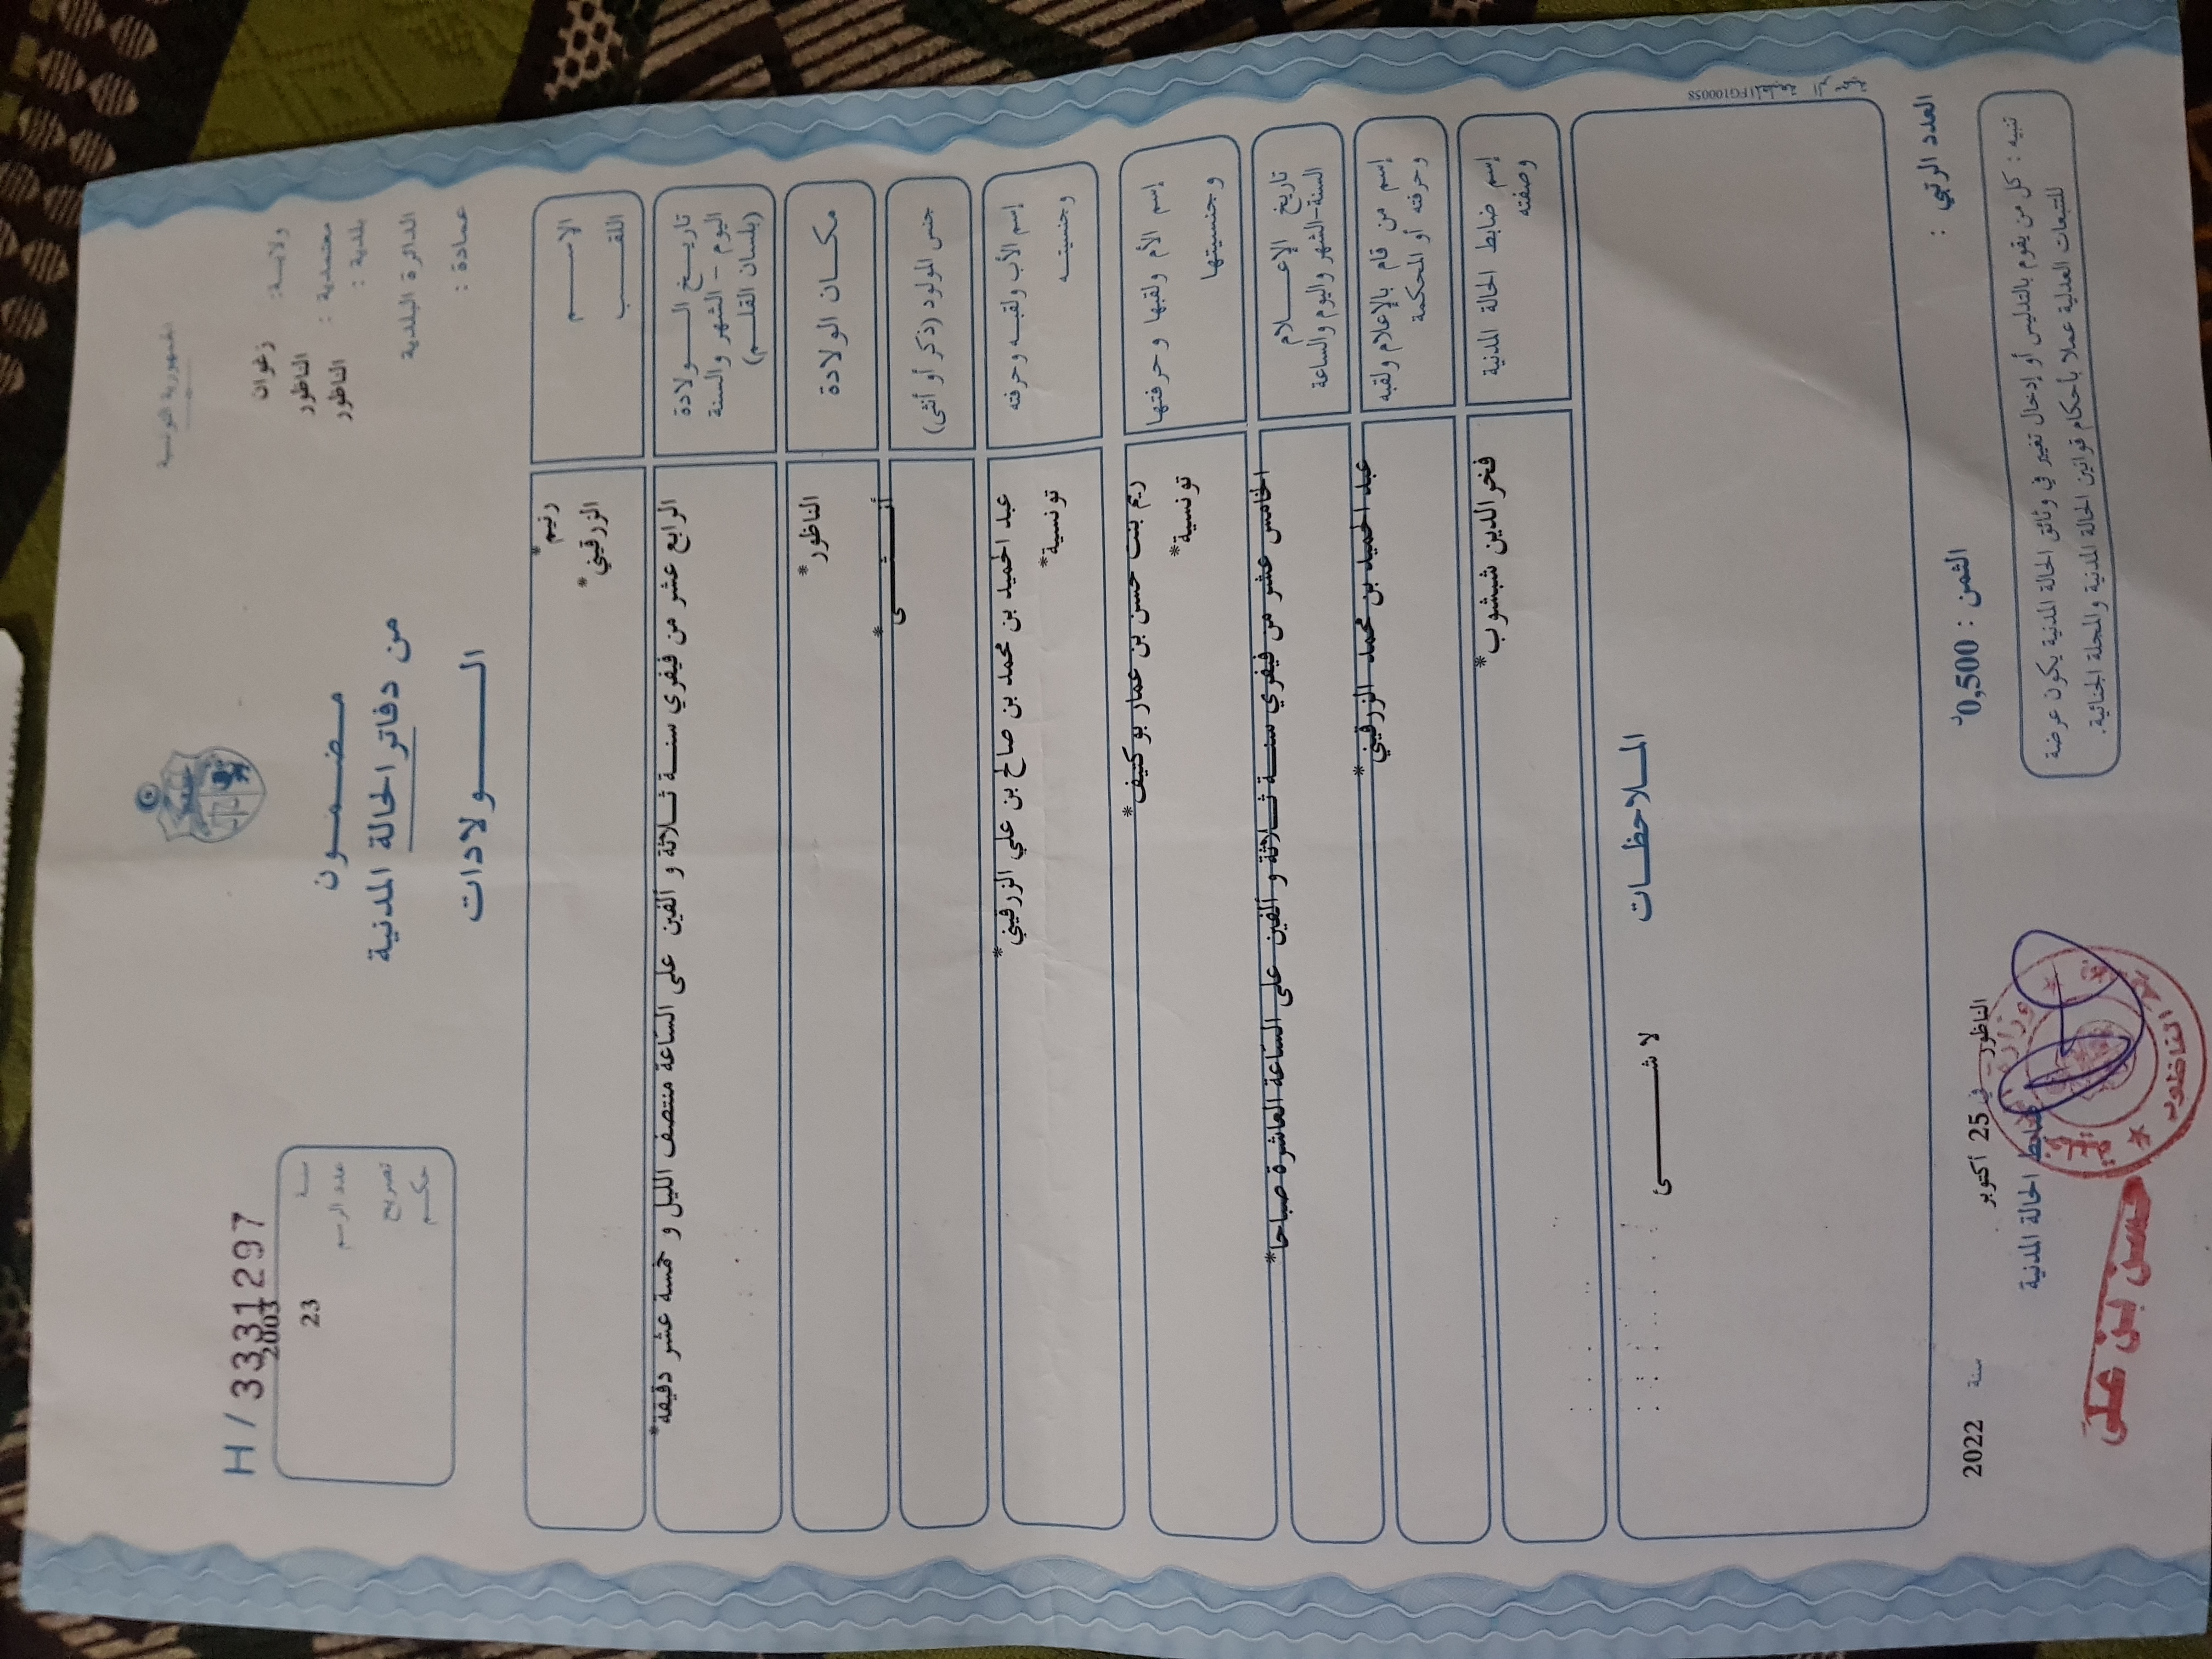 الجمهورية التونسية
ولاية: زغوان
معتمدية : الناظور
بلدية : الناظور
الدائرة البلدية
عمادة :
مضمون
من دفاتر الحالة المدنية
الولادات
H / 3331297
سنة 2003
عدد الرسم 23
تصريح
حكم
الاسم رنيم*
اللقب الزرقيني*
تاريخ الولادة
اليوم - الشهر والسنة
(بلسان القلم)
الرابع عشر من فيفري سنة ثلاثة و ألفين على الساعة منتصف الليل و خمسة عشر دقيقة*
مكان الولادة الناظور*
جنس المولود (ذكر أو أنثى) أنثى*
إسم الأب ولقبه وحرفته عبد الحميد بن محمد بن صالح بن علي الزرقيني*
وجنسيته تونسية*
إسم الأم ولقبها وحرفتها ريم بنت حسن بن عمار بوكتيف*
وجنسيتها تونسية*
تاريخ الإعلام
السنة-الشهر واليوم والساعة
الخامس عشر من فيفري سنة ثلاثة و ألفين على الساعة العاشرة صباحا*
إسم من قام بالإعلام ولقبه
وحرفته أو المحكمة
عبد الحميد بن محمد الزرقيني*
إسم ضابط الحالة المدنية
وصفته
فخر الدين شبشوب*
الملاحظات
لا شئ
1FG100058
العدد الرتبي :
الثمن : 0,500د
الناظور في 25 أكتوبر سنة 2022
ضابط الحالة المدنية
تنبيه : كل من يقوم بالتدليس أو إدخال تغيير في وثائق الحالة المدنية يكون عرضة
للتتبعات العدلية عملا بأحكام قوانين الحالة المدنية والمجلة الجنائية.
الناظور
حسن بن علي